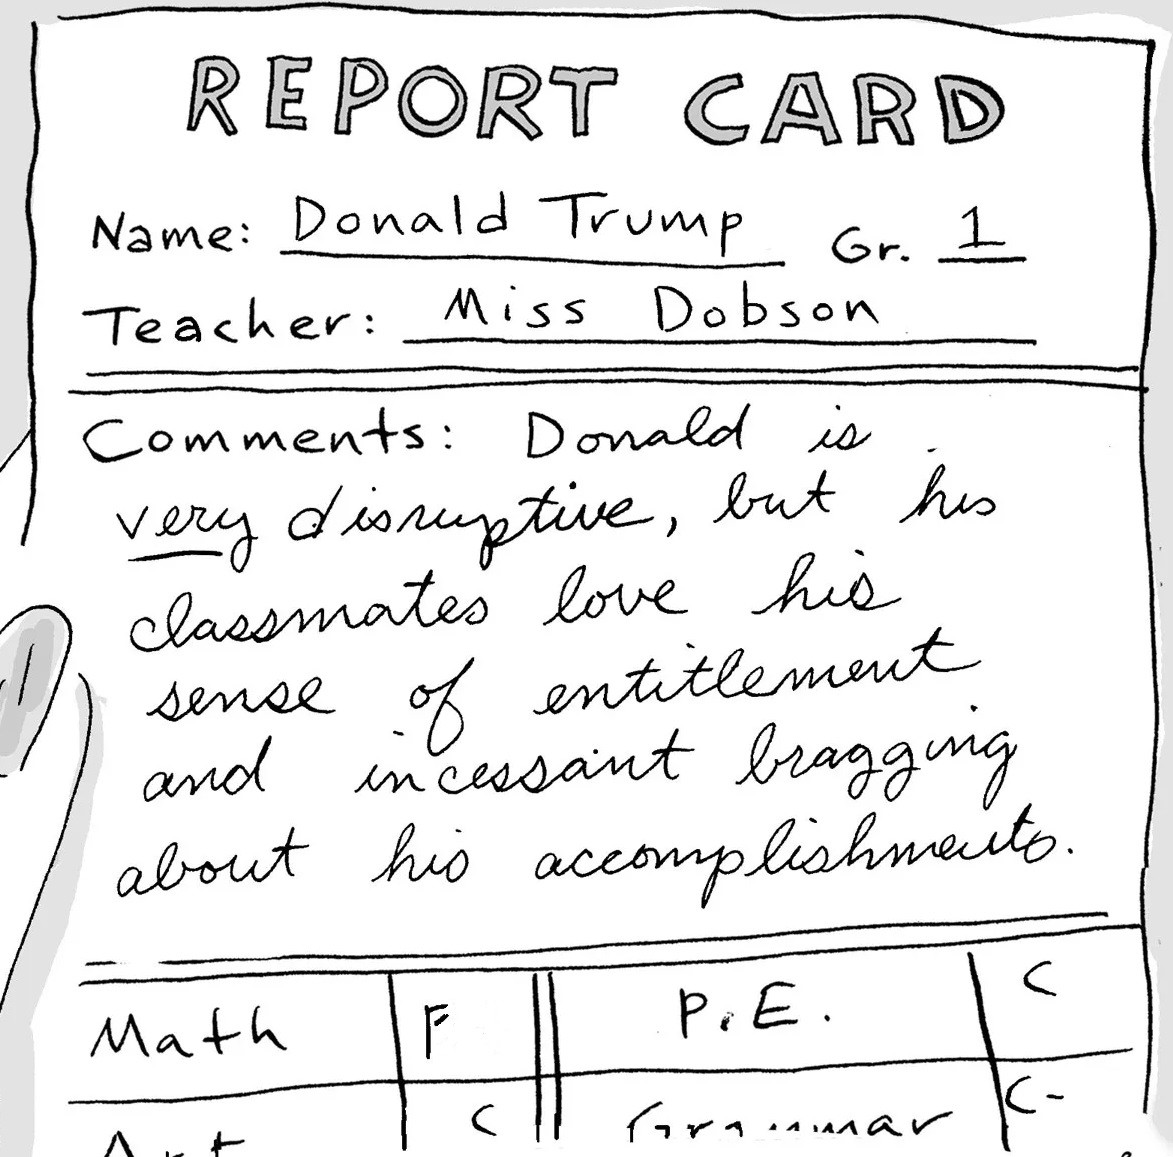 REPORT CARD
Name: Donald Trump Gr. 1
Teacher: Miss Dobson
Comments: Donald is
very disruptive, but his
classmates love his
sense of entitlement
and incessant bragging
about his accomplishments.
Math F P.E. C
Art C Grammar C-